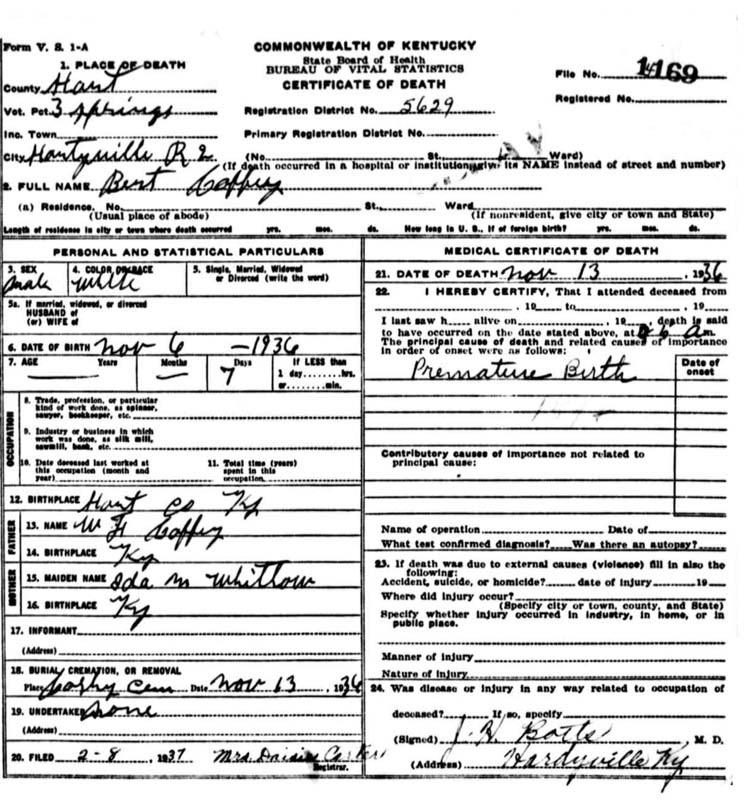 Form V. S. 1-A
COMMONWEALTH OF KENTUCKY
State Board of Health
BUREAU OF VITAL STATISTICS
CERTIFICATE OF DEATH
File No. 14169
Registered No.
1. PLACE OF DEATH
County Hart
Vot. Pct. 3 Springs
Registration District No. 5629
Inc. Town
Primary Registration District No.
City Hardyville R 2 (No. St. Ward)
(If death occurred in a hospital or institution, give its NAME instead of street and number)
2. FULL NAME Bert Coffey
(a) Residence. No. St., Ward
(Usual place of abode) (If nonresident, give city or town and State)
Length of residence in city or town where death occurred yrs. mos. ds. How long in U. S., if of foreign birth? yrs. mos. ds.
PERSONAL AND STATISTICAL PARTICULARS
3. SEX 4. COLOR OR RACE 5. Single, Married, Widowed
or Divorced (write the word)
male white
5a. If married, widowed, or divorced
HUSBAND of
(or) WIFE of
6. DATE OF BIRTH Nov 6 - 1936
7. AGE Years Months Days If LESS than
7 1 day........hrs.
or........min.
OCCUPATION
8. Trade, profession, or particular
kind of work done, as spinner,
sawyer, bookkeeper, etc.
9. Industry or business in which
work was done, as silk mill,
sawmill, bank, etc.
10. Date deceased last worked at
this occupation (month and
year)
11. Total time (years)
spent in this
occupation
12. BIRTHPLACE Hart Co Ky
FATHER
13. NAME W H Coffey
14. BIRTHPLACE Ky
MOTHER
15. MAIDEN NAME Ida M Whitlow
16. BIRTHPLACE Ky
17. INFORMANT
(Address)
18. BURIAL, CREMATION, OR REMOVAL
Place Cem Date Nov 13, 1936
19. UNDERTAKER None
(Address)
20. FILED 2-8, 1937 Mrs Daisie
Registrar.
MEDICAL CERTIFICATE OF DEATH
21. DATE OF DEATH Nov 13, 1936
22. I HEREBY CERTIFY, That I attended deceased from
, 19 to , 19
I last saw h alive on , 19 , death is said
to have occurred on the date stated above, at 6 a m.
The principal cause of death and related causes of importance
in order of onset were as follows:
Date of
onset
Premature Birth
Contributory causes of importance not related to
principal cause:
Name of operation Date of
What test confirmed diagnosis? Was there an autopsy?
23. If death was due to external causes (violence) fill in also the
following:
Accident, suicide, or homicide? date of injury 19
Where did injury occur?
(Specify city or town, county, and State)
Specify whether injury occurred in industry, in home, or in
public place.
Manner of injury
Nature of injury
24. Was disease or injury in any way related to occupation of
deceased? If so, specify
(Signed) J. H. Botts M. D.
(Address) Hardyville Ky